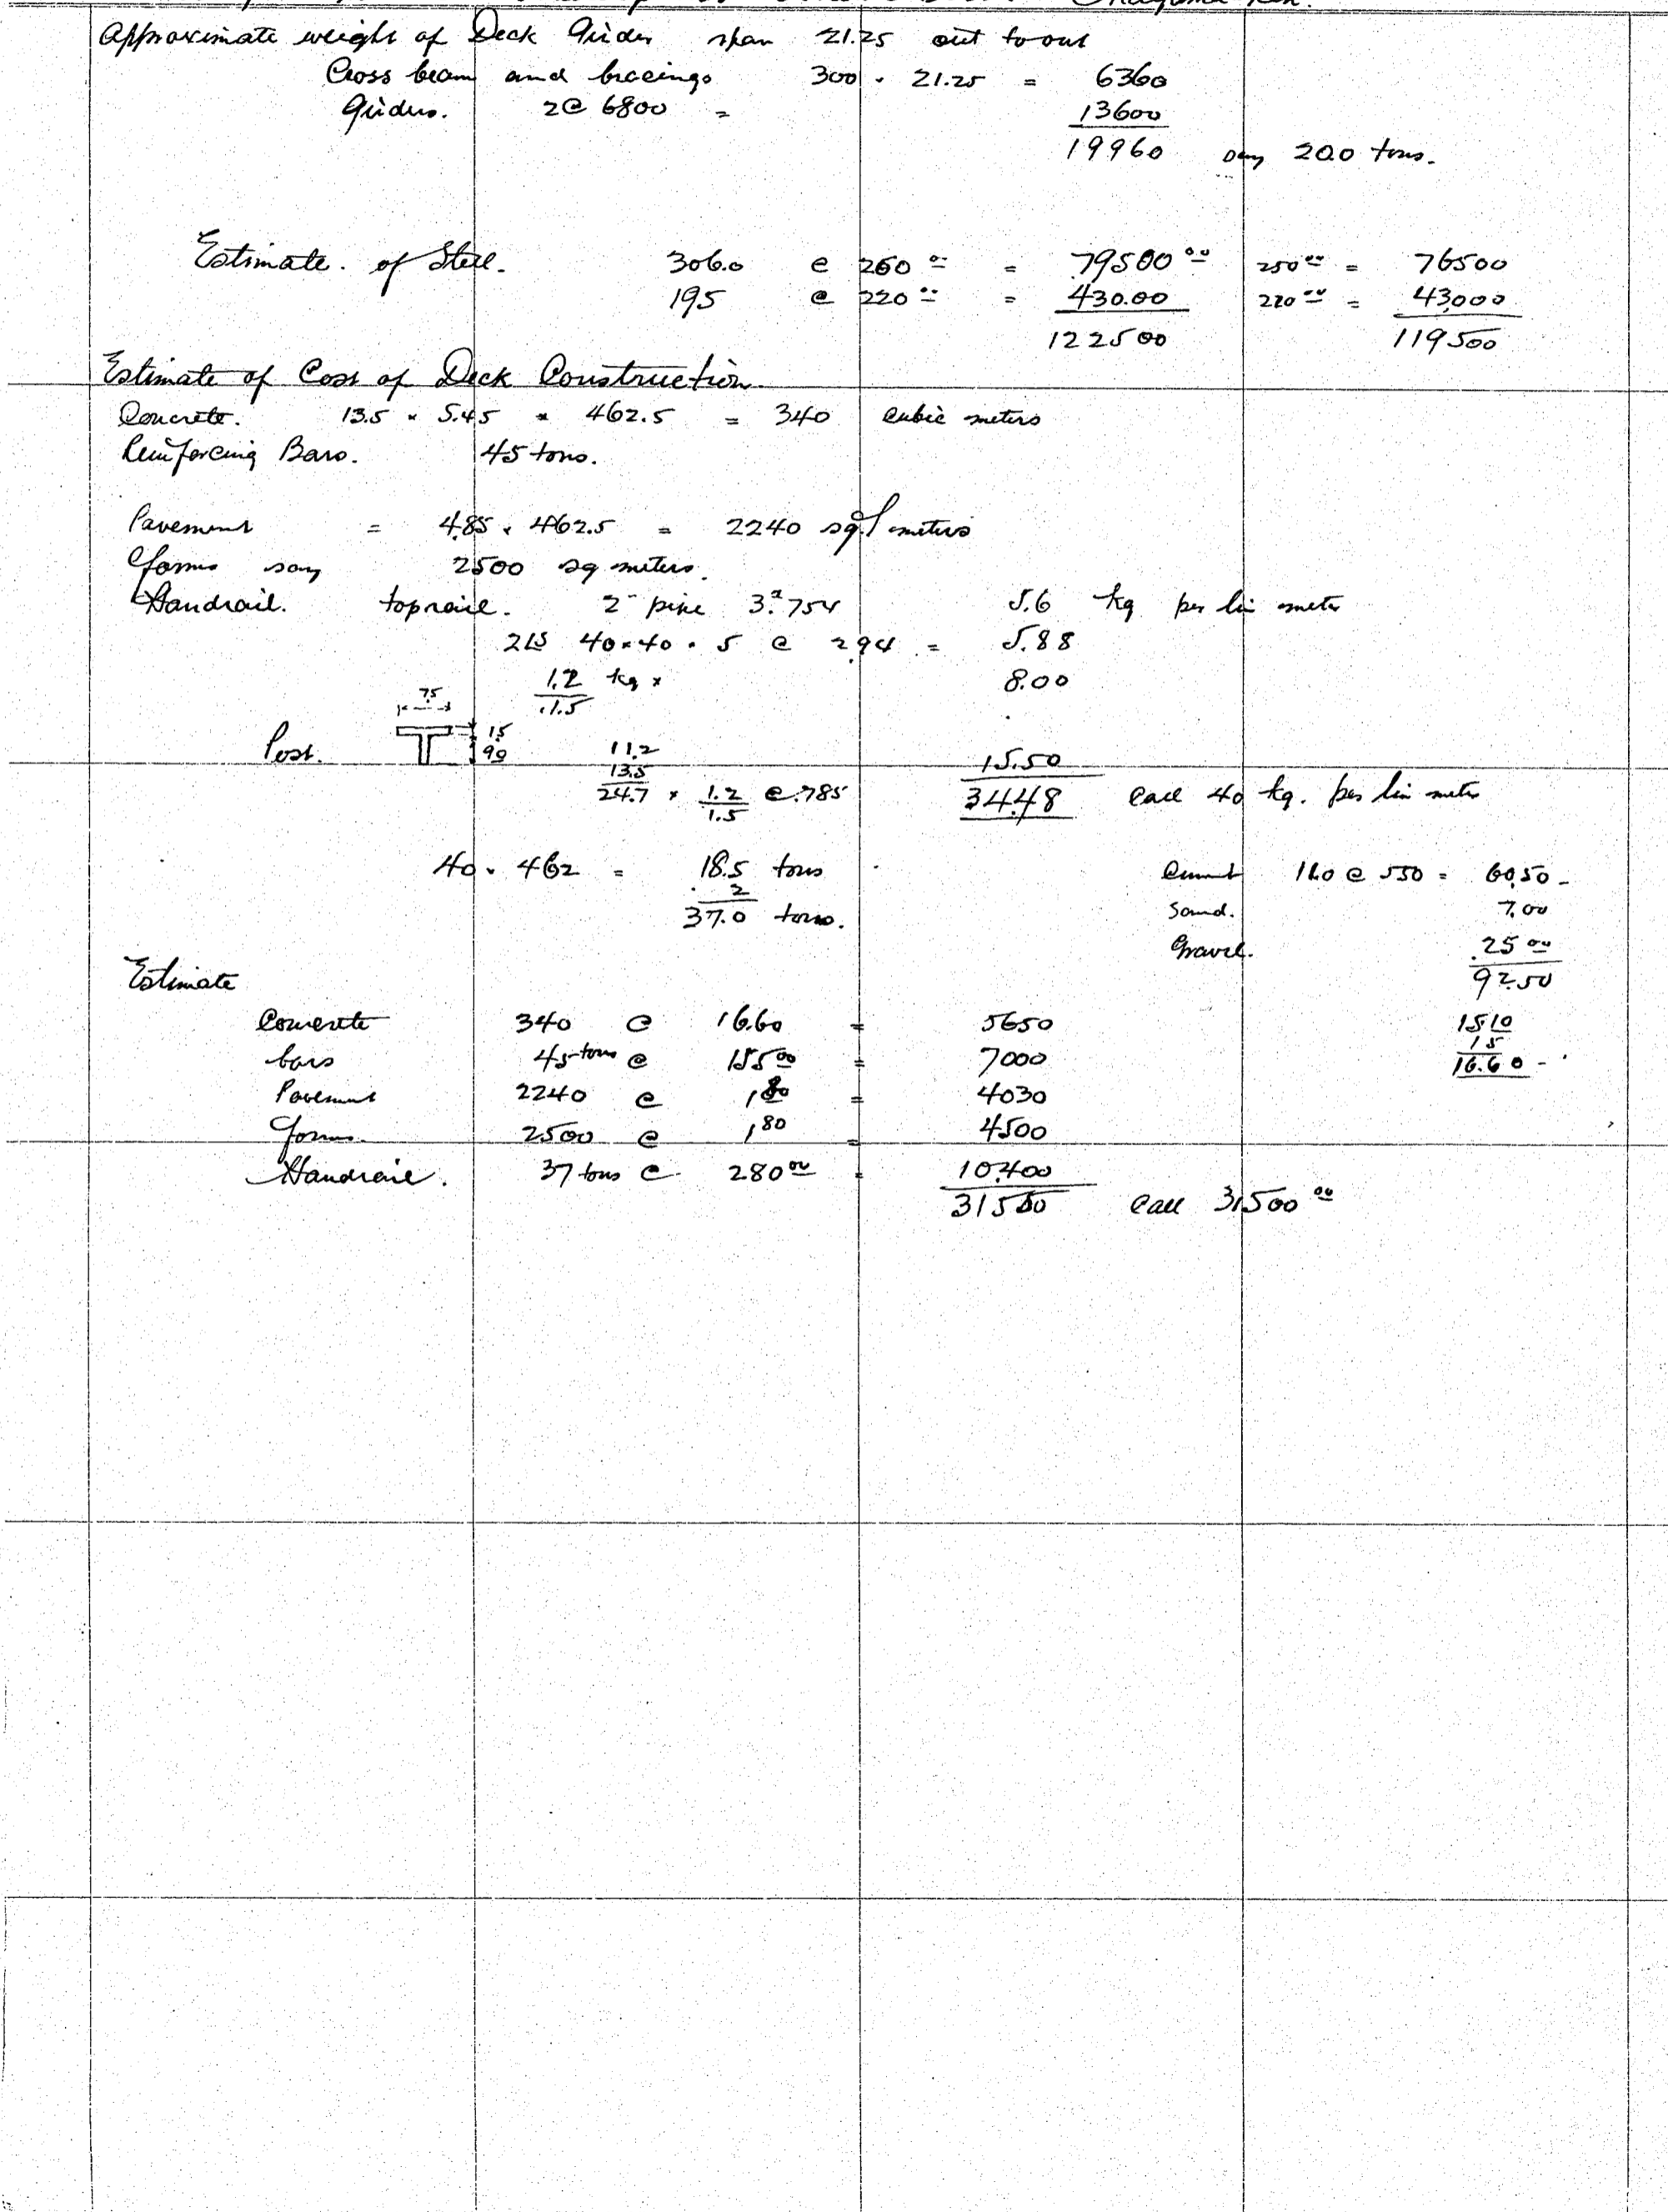 Okayama Ken.
Approximate weight of Deck Girder span 21.25 out to out
Cross beam and bracings 300 × 21.25 = 6360
Girders. 2@ 6800 = 13600
19960 say 20.0 tons.
Estimate of Steel. 306.0 @ 260 00 = 79500 00 250 00 = 76500
195 @ 220 00 = 430.00 220 00 = 43000
122500 119500
Estimate of Cost of Deck Construction
Concrete. 13.5 × 5.45 × 462.5 = 340 cubic meters
Reinforcing Bars. 45 tons.
Pavement = 4.85 × 462.5 = 2240 sq. meters
Forms say 2500 sq meters.
Handrail. top rail. 2" pipe 3.754 5.6 kg per lin meter
2Ls 40×40×5 @ 2.94 = 5.88
1.2 kg × 8.00
1.5
75
Post. 15 90 11.2 15.50
13.5
24.7 × 1.2 / 1.5 @ .785 34.48 Call 40 kg. per lin meter
40 × 462 = 18.5 tons
2
37.0 tons.
Cement 11.0 @ 550 = 60.50
Sand. 7.00
Gravel. 25 00
92.50
Estimate
Concrete 340 @ 16.60 = 5650 15.10
bars 45 tons @ 155 00 = 7000 15
16.60
Pavement 2240 @ 1.80 = 4030
Forms 2500 @ 1.80 = 4500
Handrail. 37 tons @ 280 00 = 10400
31580 Call 31500 00